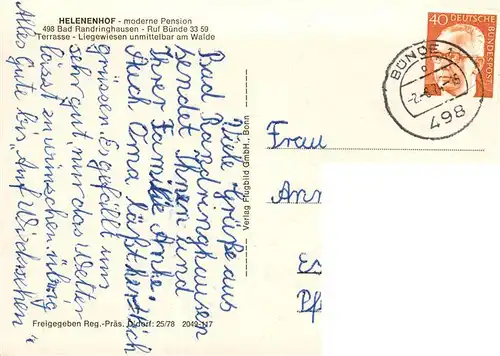 HELENENHOF - moderne Pension
498 Bad Randringhausen - Ruf Bünde 33 59
Terrasse - Liegewiesen unmittelbar am Walde
Viele Grüße aus
Bad Randringhausen
sendet Ihnen und
Ihrer Familie Anke.
Auch Oma läßt herzlich
grüssen. Es gefällt uns
sehr gut, nur das Wetter
lässt zu wünschen übrig
Alles Gute bis „Auf Wiedersehen“
Verlag Flugbild GmbH., Bonn
Freigegeben Reg.-Präs. D'dorf: 25/78 2049-117
40 DEUTSCHE
BUNDESPOST
BÜNDE 1
498
Frau
Ann